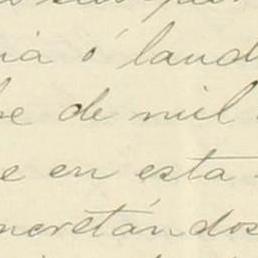 ó laud
de mil
e en esta
ncretándos